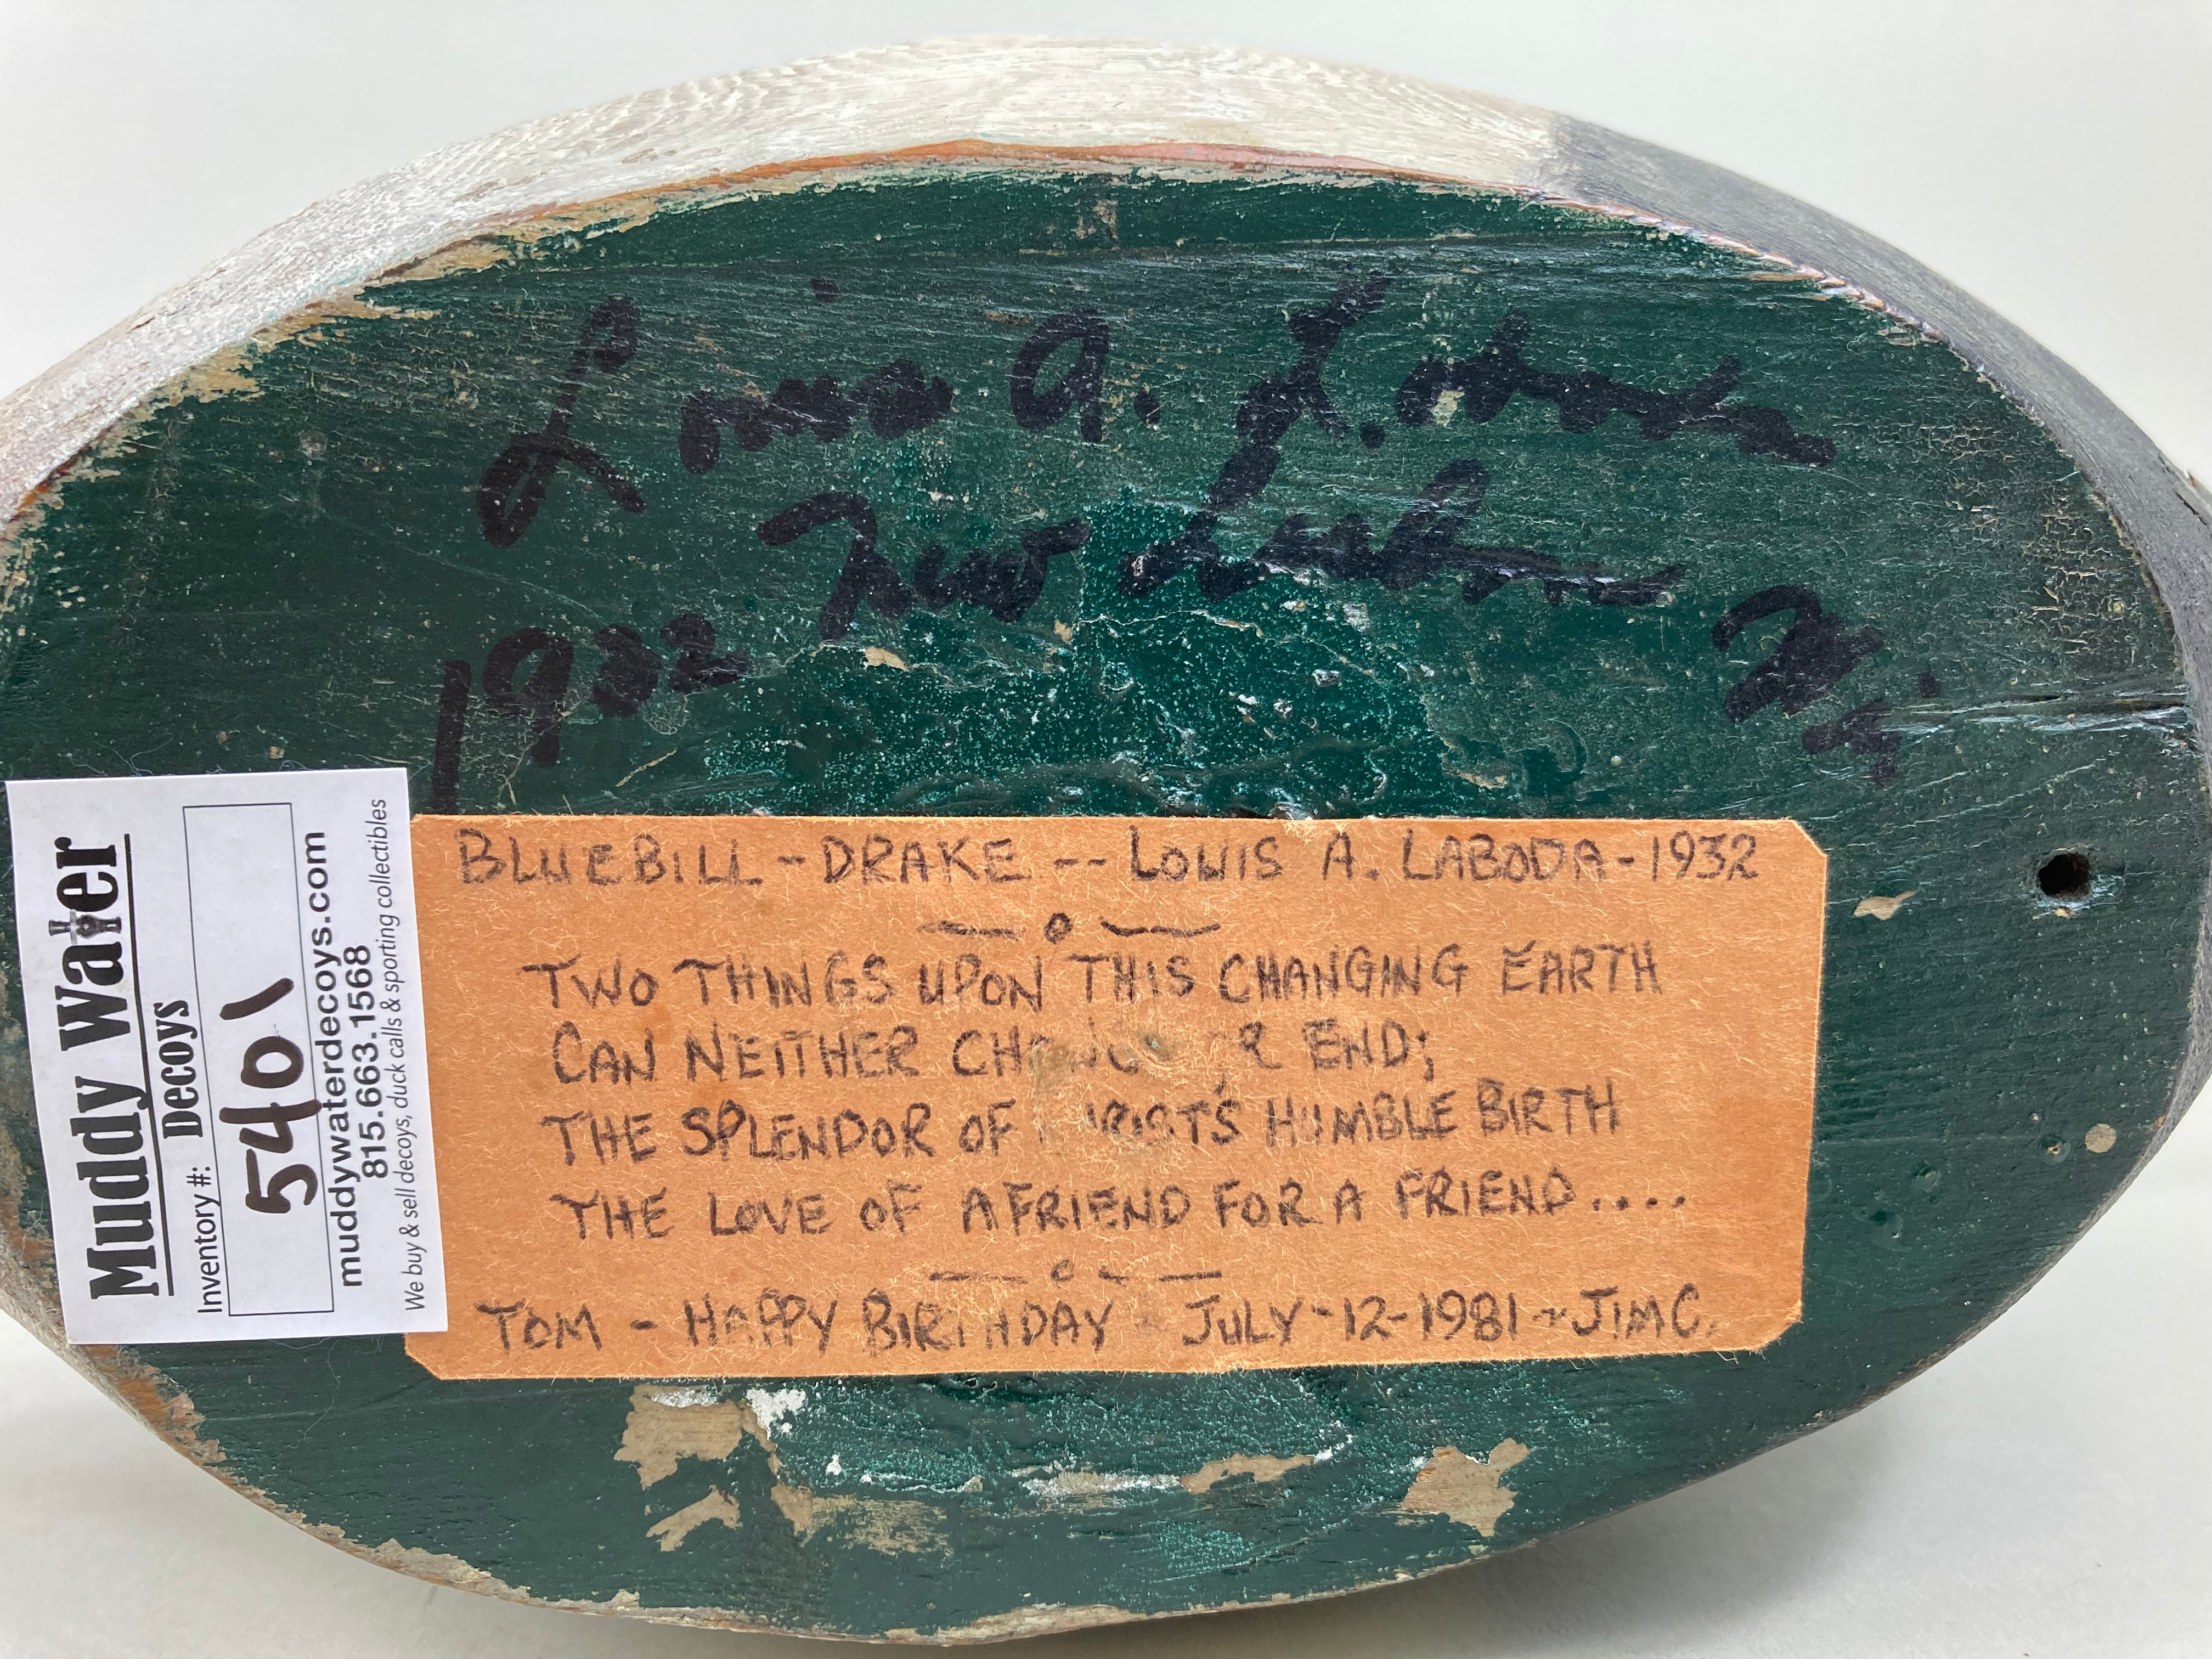 Louis A. Laboda
1932 New Lisbon Wis
BLUEBILL - DRAKE -- LOUIS A. LABODA - 1932
TWO THINGS UPON THIS CHANGING EARTH
CAN NEITHER END;
THE SPLENDOR OF HUMBLE BIRTH
THE LOVE OF A FRIEND FOR A FRIEND....
TOM - HAPPY BIRTHDAY - JULY-12-1981 ~ JIM C.
Muddy Water
Decoys
Inventory #:
5401
muddywaterdecoys.com
815.663.1568
We buy & sell decoys, duck calls & sporting collectibles